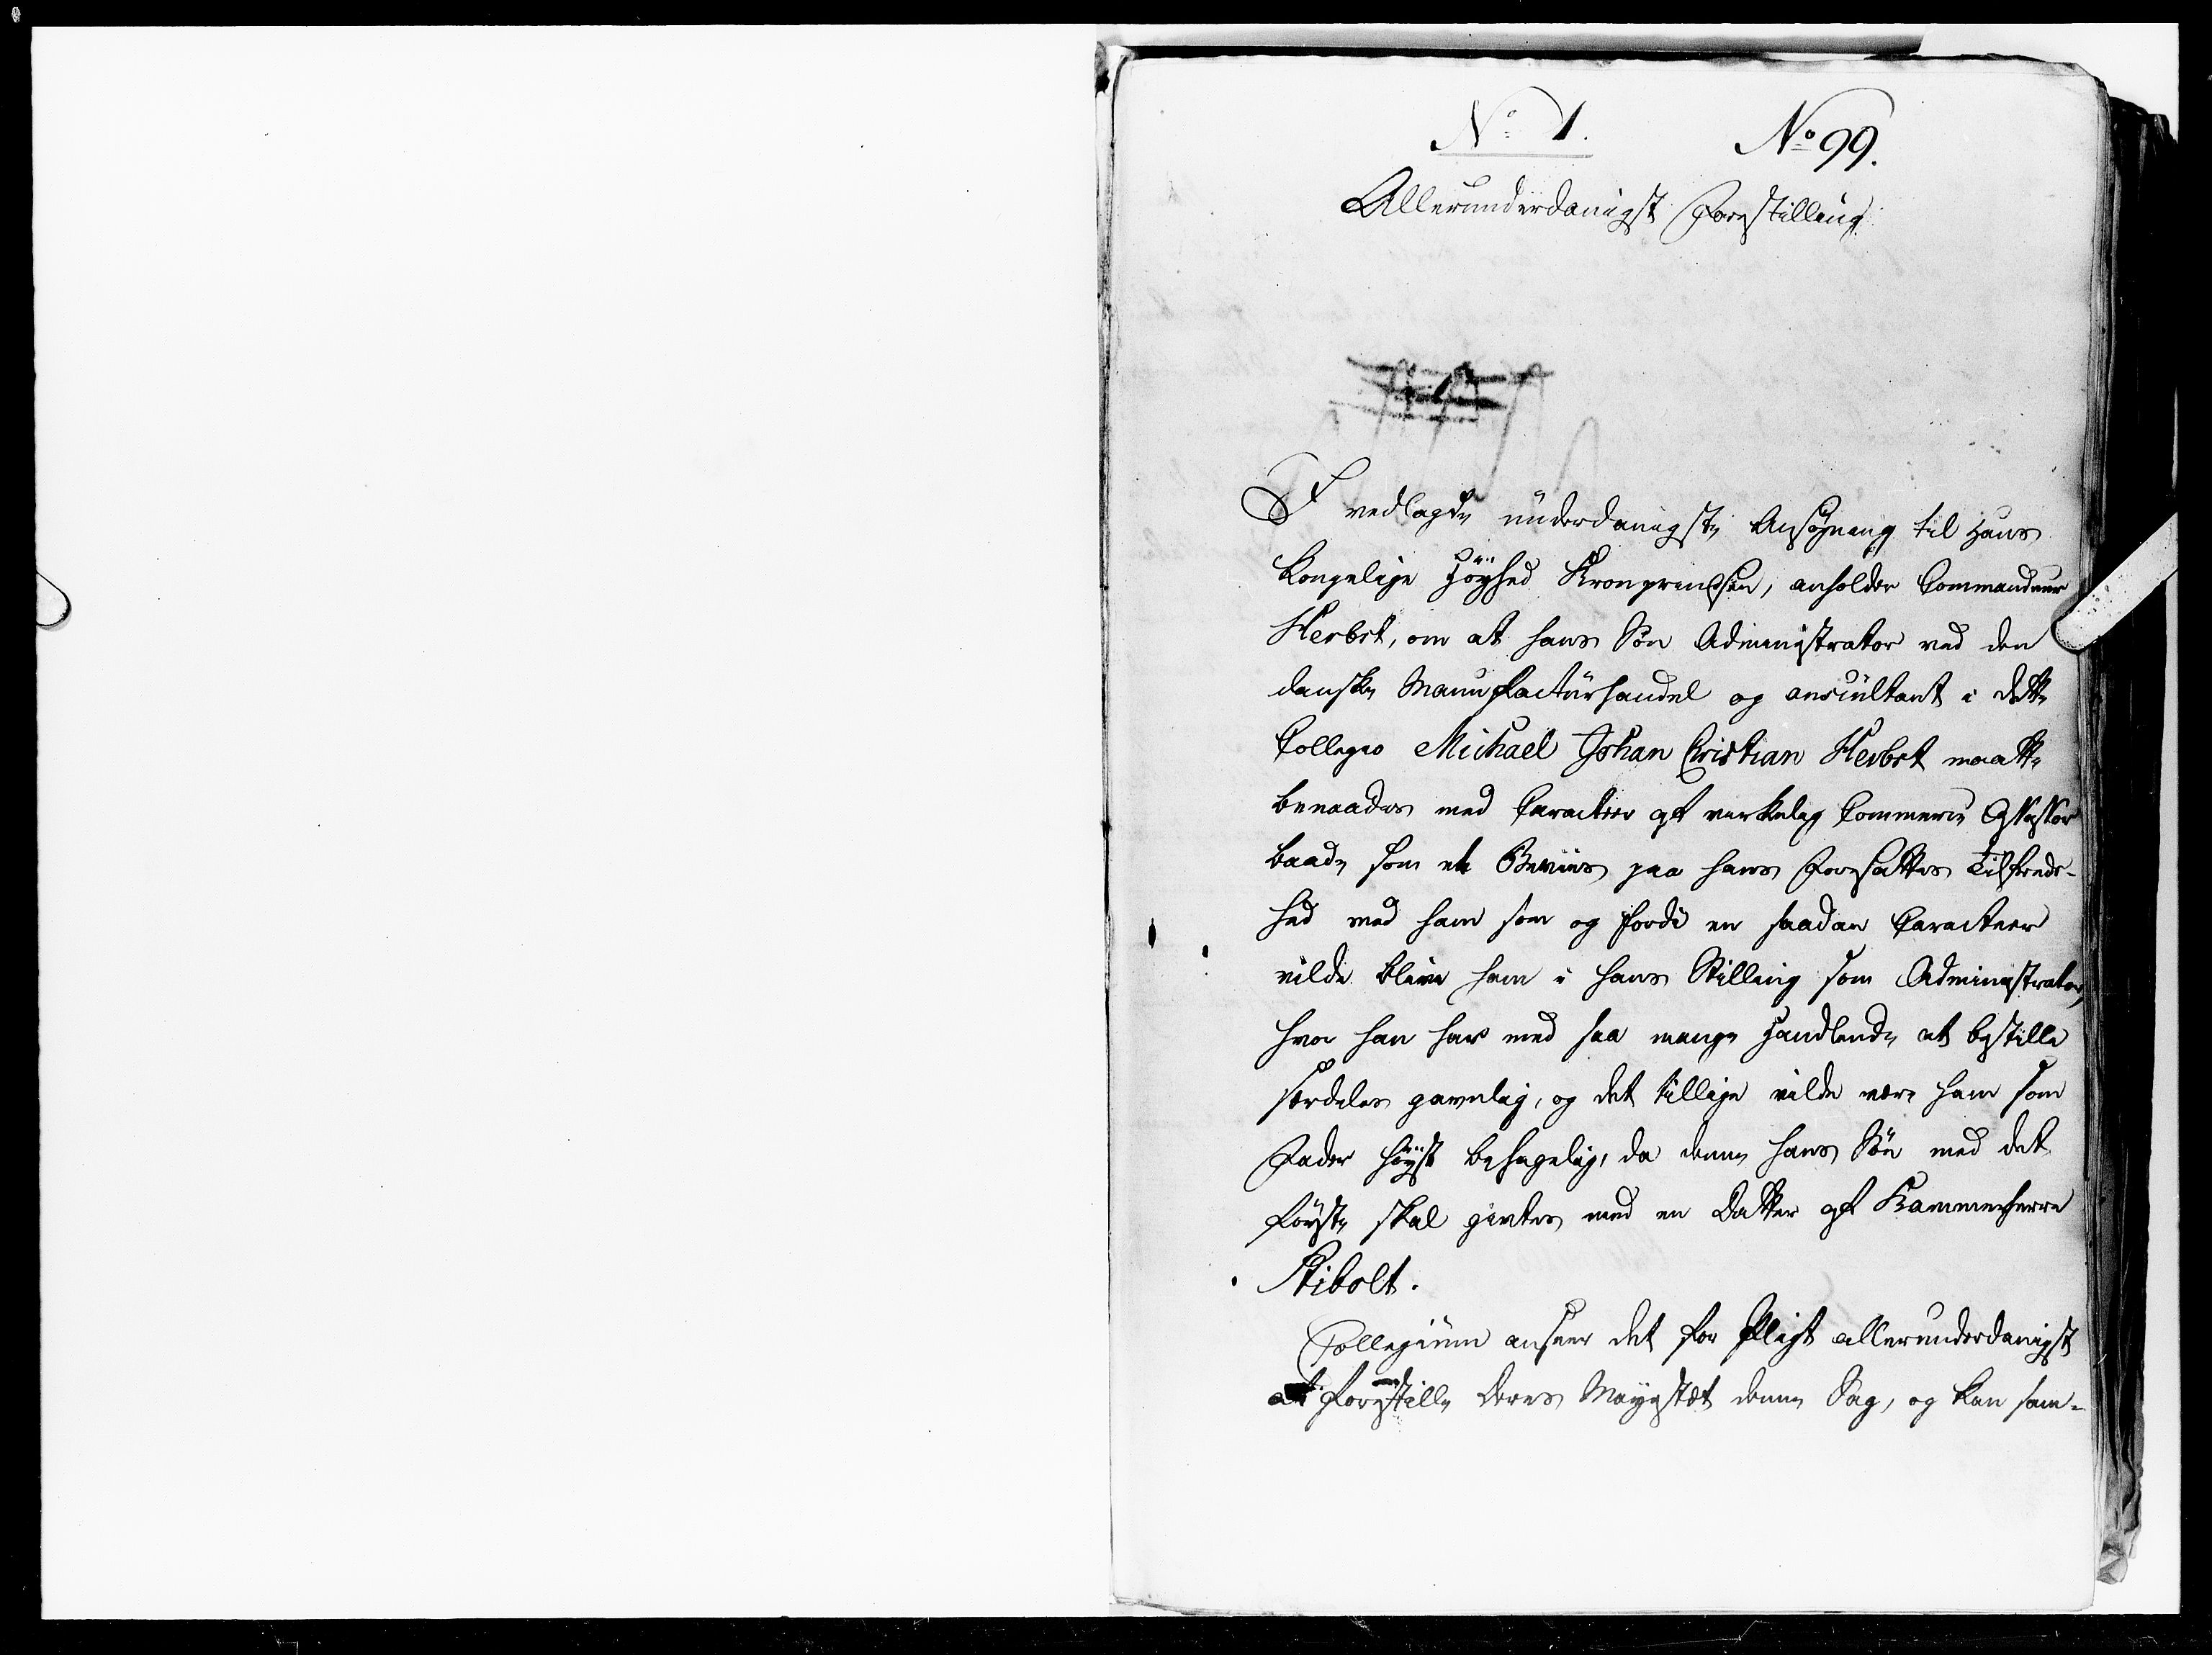 No 1. No 99.
Allerunderdanigst Forestilling
I vedlagde underdanigste Ansøgning til Hans
Kongelige Høyhed Kronprindsen, anholder Commandeur
Herbst, om at hans Søn Administrator ved den
danske Manufactúrhandel og auscultant i dette
Collegio Michael Johan Cristian Herbst maatte
benaades med Caracteer af virkelig Commerce Assessor
baade som et Beviis paa hans Foresattes Tilfreds-
hed med ham som og fordi en saadan Caracteer
vilde blive ham i hans Stilling som Administrator,
hvor han har med saa mange Handlende at bestille
særdeles gavnlig, og det tillige vilde være ham som
Fader høyst behagelig, da denne hans Søn med det
første skal giftes med en Datter af Kammerherre
Stibolt.
Collegium anseer det for Pligt allerunderdanigst
at forestille Deres Mayestæt denne Sag, og kan sam-